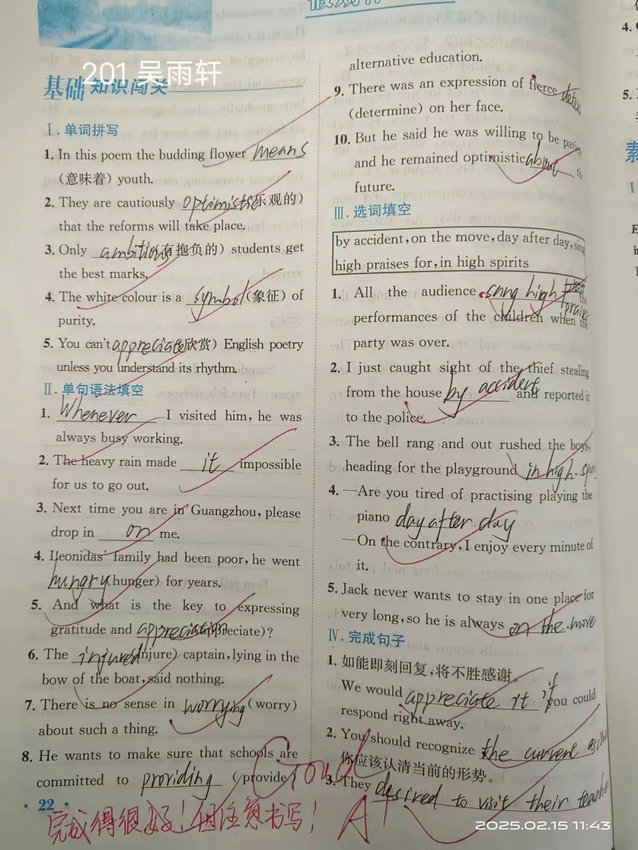 201 吴雨轩
基础知识闯关
Ⅰ.单词拼写
1. In this poem the budding flower means
(意味着) youth.
2. They are cautiously optimistic(乐观的)
that the reforms will take place.
3. Only ambitious(有抱负的) students get
the best marks.
4. The white colour is a symbol(象征) of
purity.
5. You can't appreciate(欣赏) English poetry
unless you understand its rhythm.
Ⅱ.单句语法填空
1. Whenever I visited him, he was
always busy working.
2. The heavy rain made it impossible
for us to go out.
3. Next time you are in Guangzhou, please
drop in on me.
4. Leonidas' family had been poor, he went
hungry(hunger) for years.
5. And what is the key to expressing
gratitude and appreciation(appreciate)?
6. The injured(injure) captain, lying in the
bow of the boat, said nothing.
7. There is no sense in worrying(worry)
about such a thing.
8. He wants to make sure that schools are
committed to providing (provide)
22
完成得很好!但注意书写!
Good
A+
alternative education.
9. There was an expression of fierce
(determine) on her face.
10. But he said he was willing to be
and he remained optimistic about
future.
Ⅲ.选词填空
by accident, on the move, day after day, sing
high praises for, in high spirits
1. All the audience sang high praises
performances of the children when the
party was over.
2. I just caught sight of the thief stealing
from the house by accident and reported it
to the police.
3. The bell rang and out rushed the boys,
heading for the playground in high
4. —Are you tired of practising playing the
piano day after day
—On the contrary, I enjoy every minute of
it.
5. Jack never wants to stay in one place for
very long, so he is always on the move
Ⅳ.完成句子
1. 如能即刻回复,将不胜感谢。
We would appreciate it if you could
respond right away.
2. You should recognize the current
你应该认清当前的形势。
3. They desired to visit their
2025.02.15 11:43